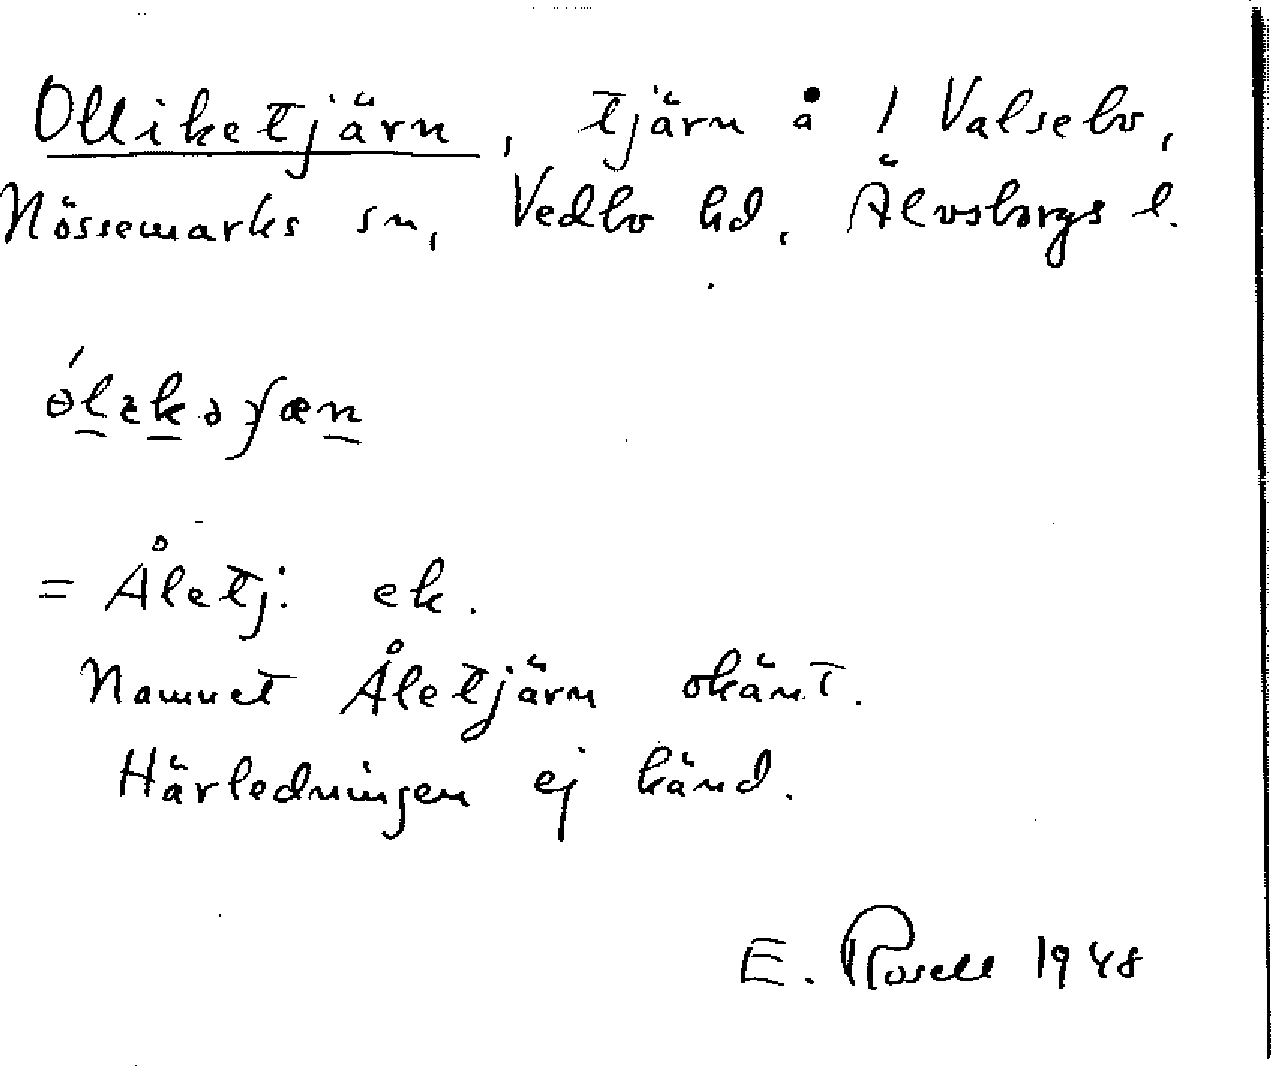 Olliketjärn, tjärn å 1 Valsebo,
Nössemarks sn, Vedbo hd, Älvsborgs l.
= Åletj: ek.
Namnet Åletjärn okänt.
Härledningen ej känd.
E. Rosell 1948